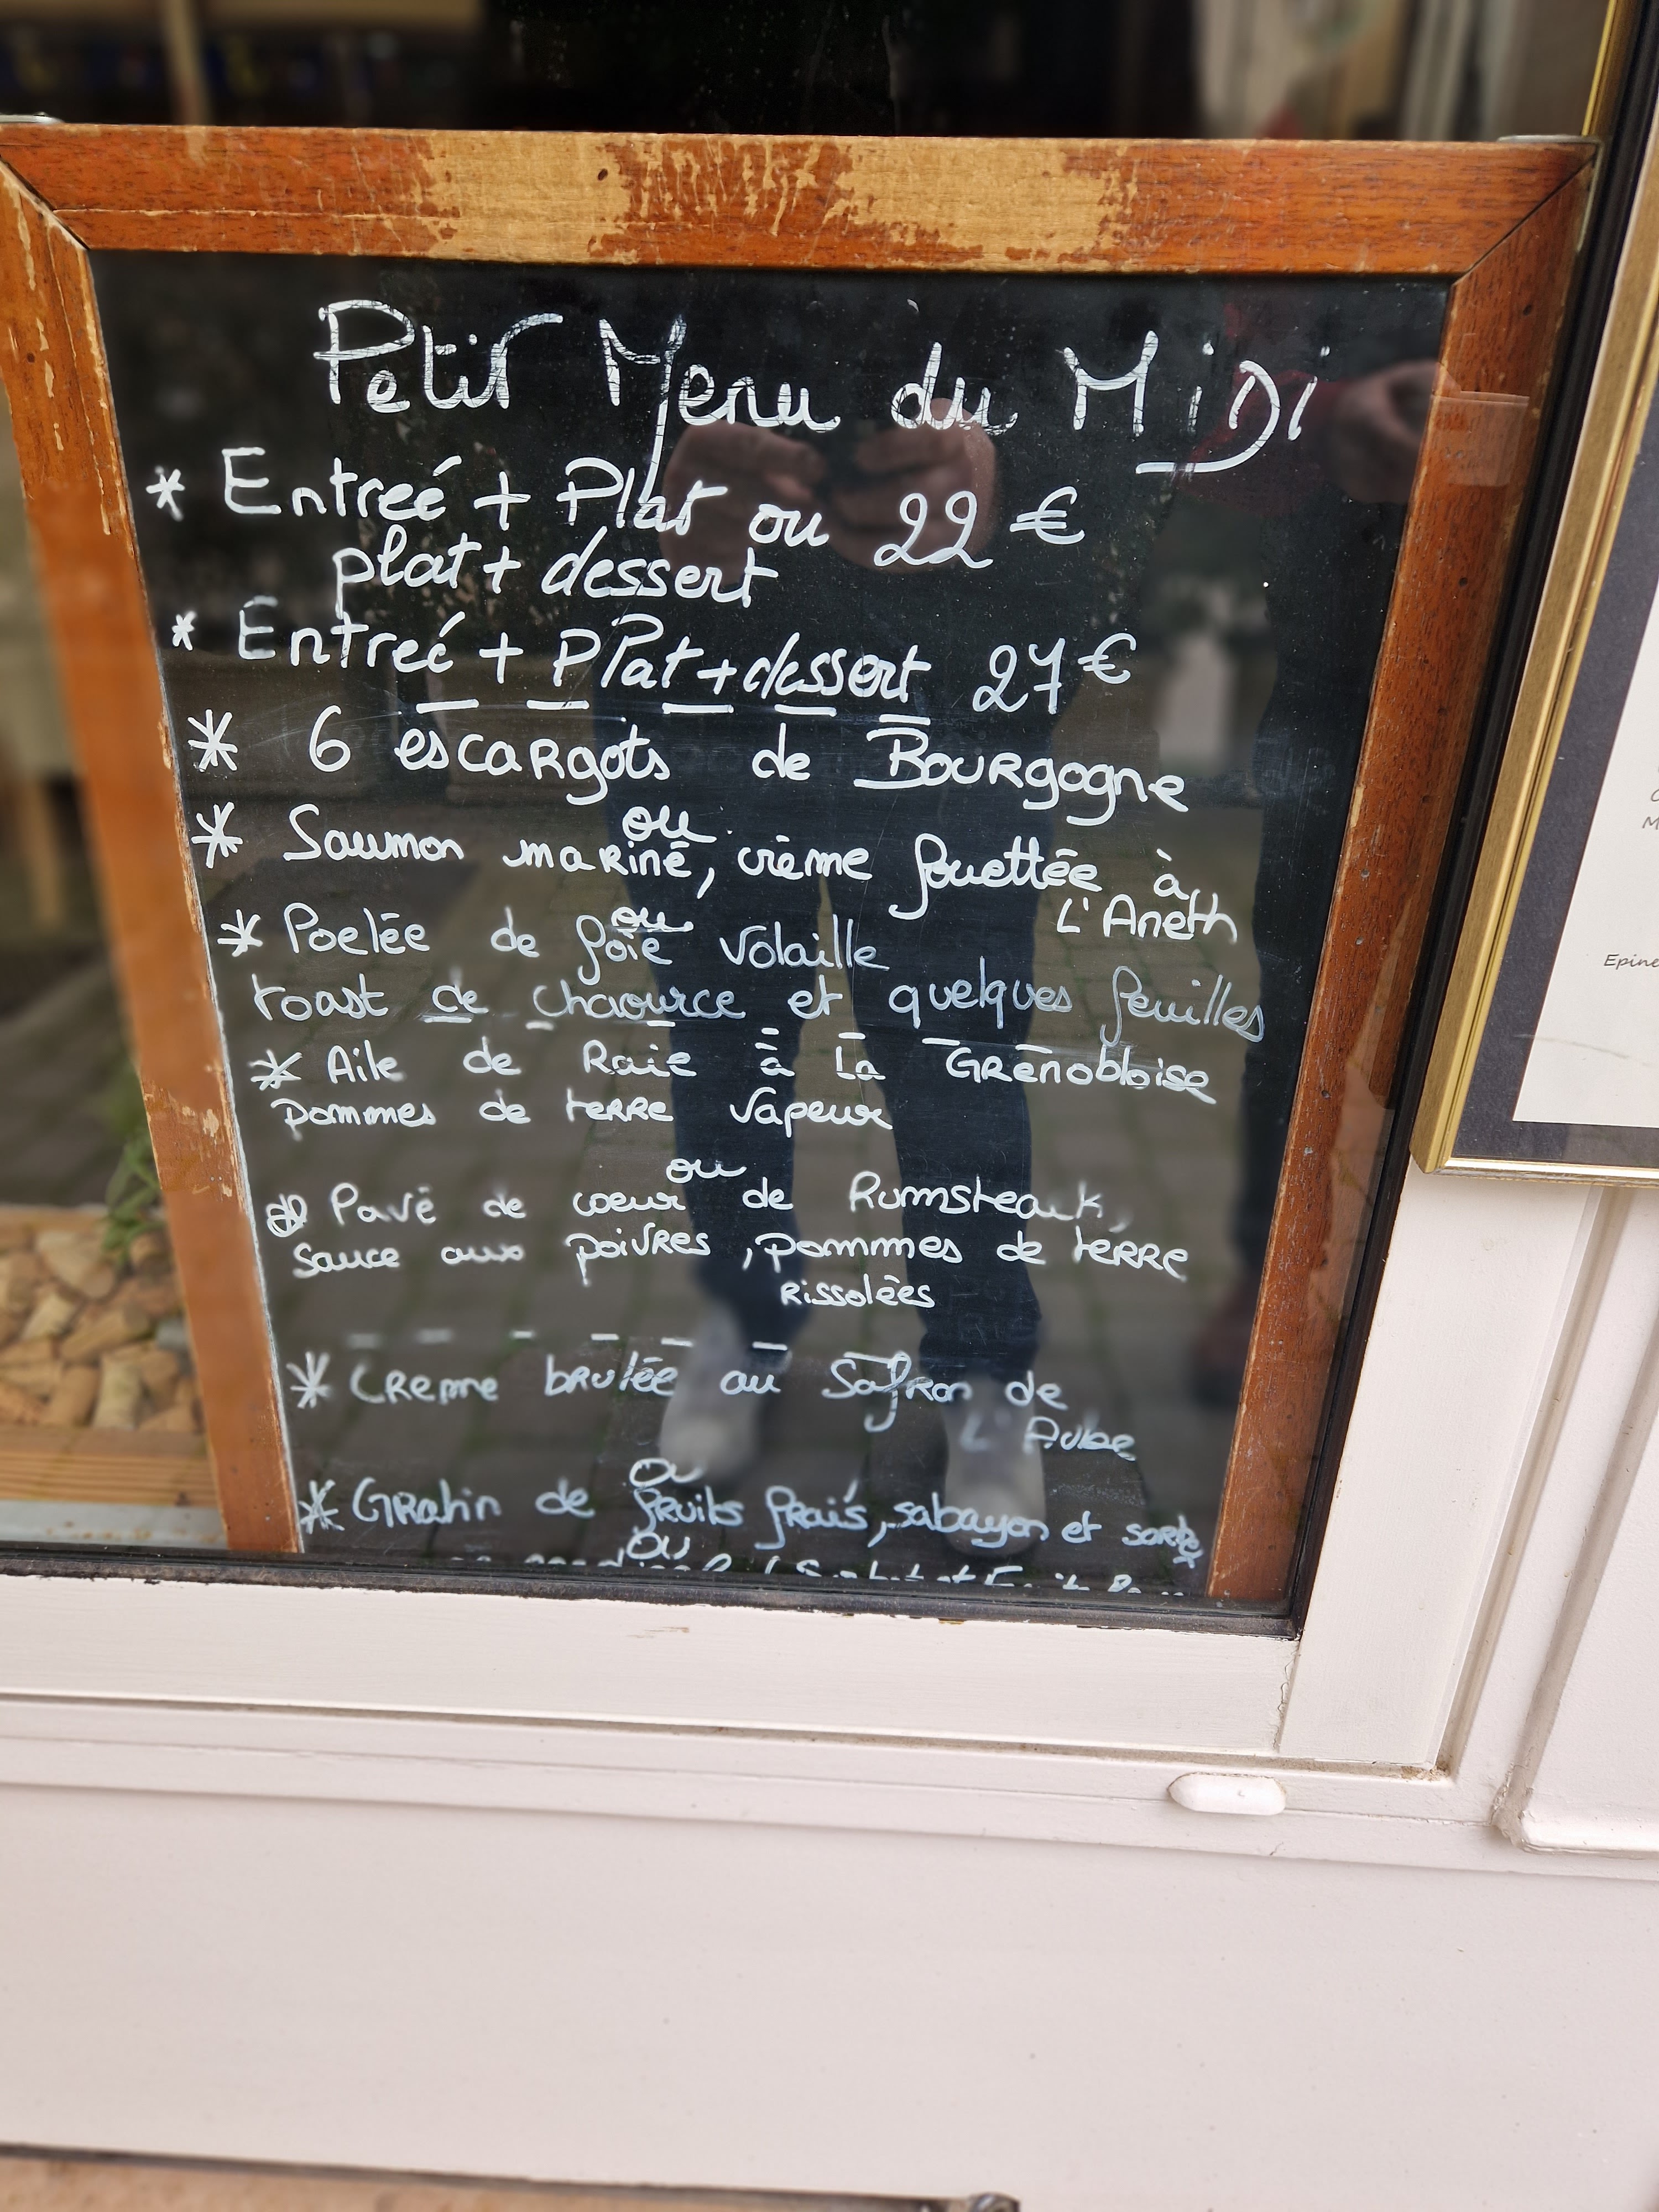 Petit Menu du MiDi
* Entreé + Plat ou 22 €
plat + dessert
* Entreé + Plat + dessert 27 €
* 6 escargots de Bourgogne
ou
* Saumon mariné, crème fouettée à
L'Aneth
ou
* Poelée de foie Volaille
toast de chaource et quelques feuilles
* Aile de Raie à La Grenobloise
pommes de terre vapeur
ou
Pavé de coeur de Rumsteack,
Sauce aux poivres, pommes de terre
Rissolées
* Creme brulée au Safran de
L'Aube
ou
* Gratin de fruits frais, sabayon et sorbet
ou
Epine